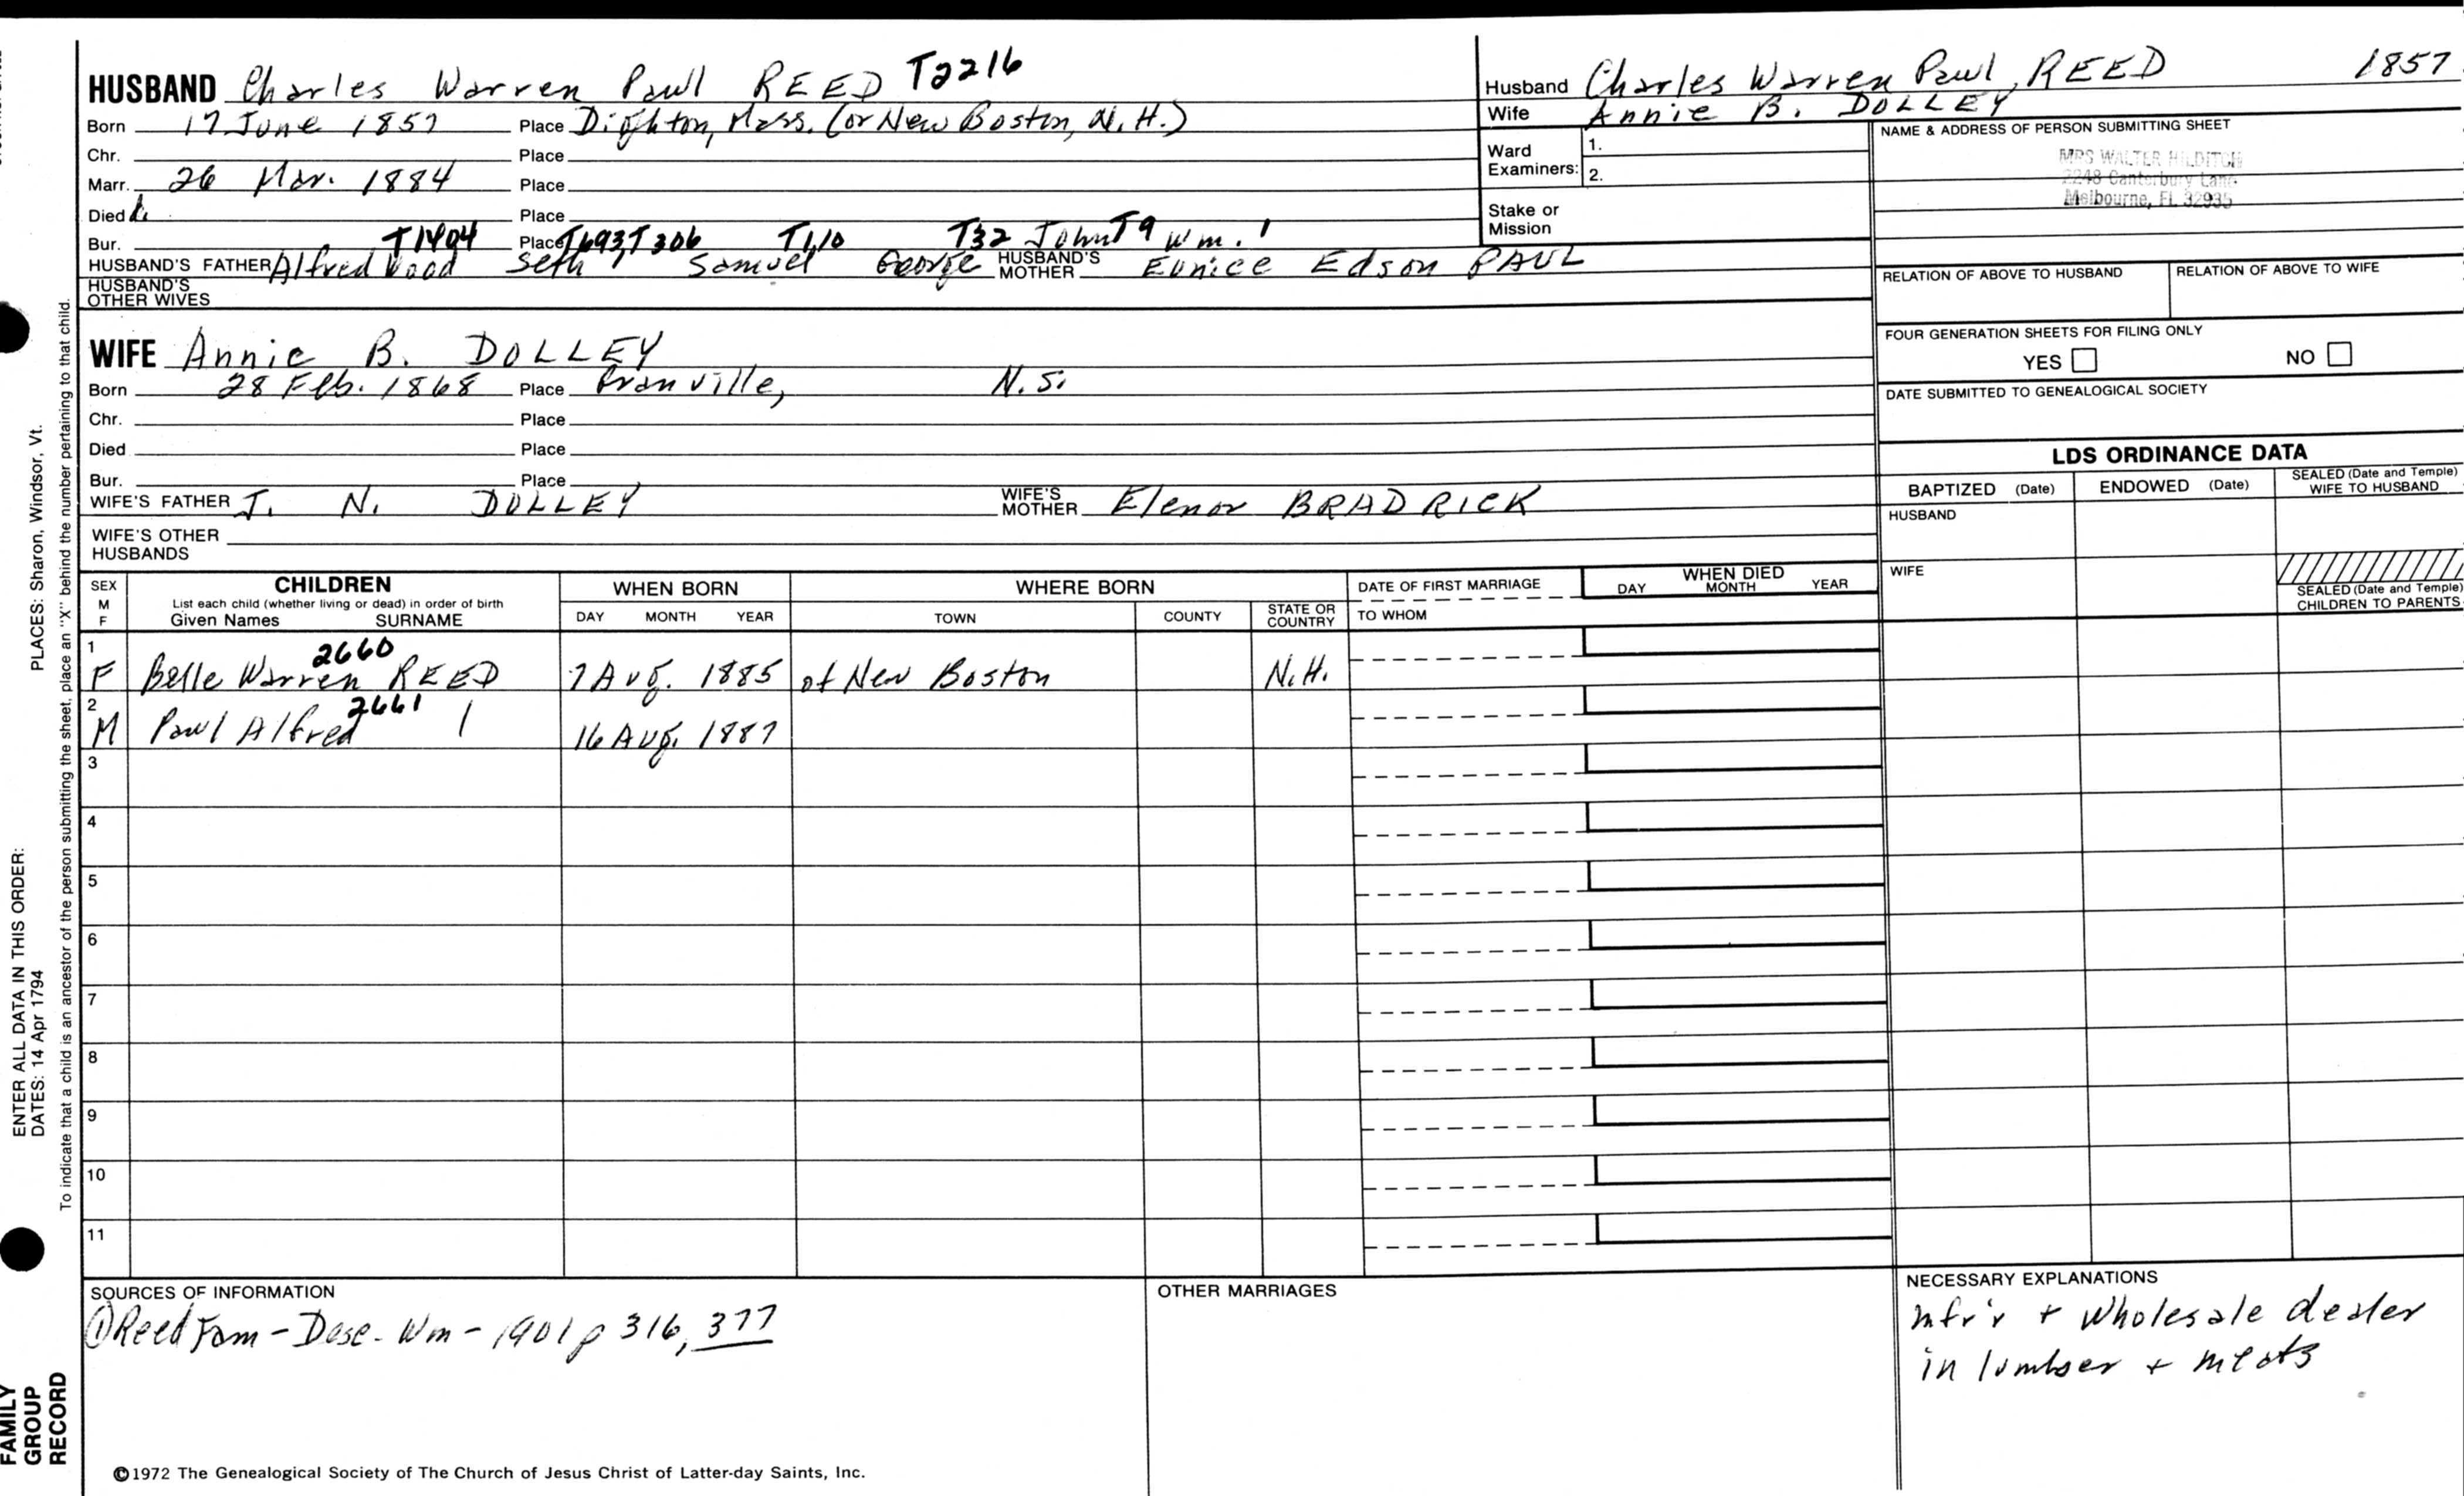 HUSBAND Charles Warren Paul REED T2216
Born 17 June 1857 Place Dighton, Mass. (or New Boston, N.H.)
Chr. Place
Marr. 26 Mar. 1884 Place
Died Place
Bur. T1404 Place T693, T306 T110 T32 John T9 Wm. 1
HUSBAND'S FATHER Alfred Wood Seth Samuel George HUSBAND'S MOTHER Eunice Edson PAUL
HUSBAND'S
OTHER WIVES
Husband Charles Warren Paul REED 1857
Wife Annie B. DOLLEY
Ward
Examiners: 1.
2.
Stake or
Mission
NAME & ADDRESS OF PERSON SUBMITTING SHEET
MRS WALTER HILDITCH
2248 Canterbury Lane
Melbourne, FL 32935
RELATION OF ABOVE TO HUSBAND RELATION OF ABOVE TO WIFE
FOUR GENERATION SHEETS FOR FILING ONLY
YES NO
DATE SUBMITTED TO GENEALOGICAL SOCIETY
WIFE Annie B. DOLLEY
Born 28 Feb. 1868 Place Granville, N.S.
Chr. Place
Died Place
Bur. Place
WIFE'S FATHER J. N. DOLLEY WIFE'S MOTHER Elenor BRADRICK
WIFE'S OTHER
HUSBANDS
LDS ORDINANCE DATA
BAPTIZED (Date) ENDOWED (Date) SEALED (Date and Temple)
WIFE TO HUSBAND
HUSBAND
WIFE
SEALED (Date and Temple)
CHILDREN TO PARENTS
SEX
M
F
CHILDREN
List each child (whether living or dead) in order of birth
Given Names SURNAME
WHEN BORN
DAY MONTH YEAR
WHERE BORN
TOWN COUNTY STATE OR
COUNTRY
DATE OF FIRST MARRIAGE
TO WHOM
WHEN DIED
DAY MONTH YEAR
1 2660
F Belle Warren REED 7 Aug. 1885 of New Boston N.H.
2 2661
M Paul Alfred | 16 Aug. 1887
3
4
5
6
7
8
9
10
11
SOURCES OF INFORMATION
① Reed Fam - Desc. Wm - 1901 p 316, 377
OTHER MARRIAGES
NECESSARY EXPLANATIONS
mfr'r + wholesale dealer
in lumber + meats
©1972 The Genealogical Society of The Church of Jesus Christ of Latter-day Saints, Inc.
PLACES: Sharon, Windsor, Vt.
ENTER ALL DATA IN THIS ORDER:
DATES: 14 Apr 1794
To indicate that a child is an ancestor of the person submitting the sheet, place an "X" behind the number pertaining to that child.
FAMILY
GROUP
RECORD